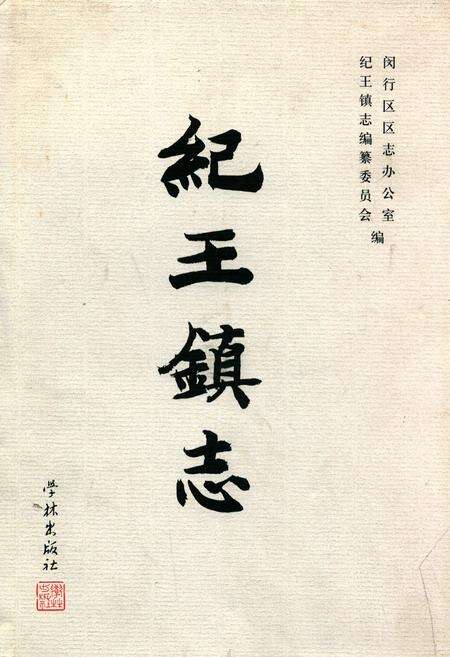 闵行区区志办公室
纪王镇志编纂委员会 编
紀王鎮志
学林出版社